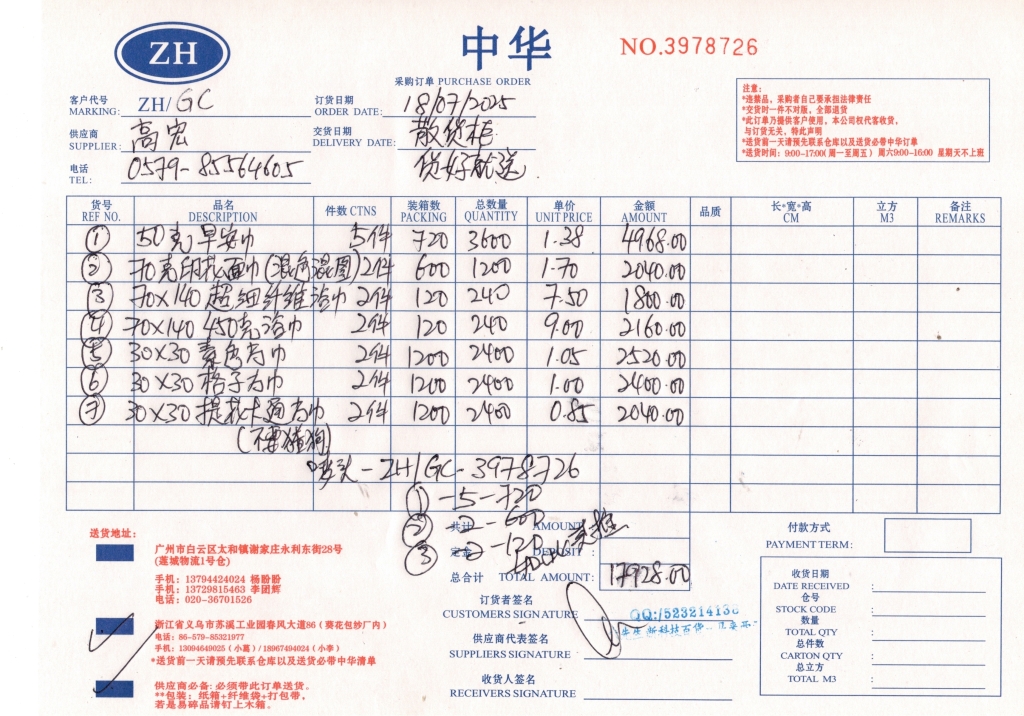 ZH
中华
NO.3978726
采购订单 PURCHASE ORDER
客户代号
MARKING: ZH/GC
订货日期
ORDER DATE: 18/07/2025
供应商
SUPPLIER: 高宏
交货日期
DELIVERY DATE: 散货柜
货好就送
电话
TEL: 0579-85564605
注意:
*违禁品，采购者自己要承担法律责任
*交货时一件不对版，全部退货
*此订单乃提供客户使用，本公司权代客收货，
与订货无关，特此声明
*送货前一天请预先联系仓库以及送货必带中华订单
*送货时间：9:00-17:00(周一至周五) 周六9:00-16:00 星期天不上班
货号 品名 件数 CTNS 装箱数 总数量 单价 金额 品质 长*宽*高 立方 备注
REF NO. DESCRIPTION PACKING QUANTITY UNIT PRICE AMOUNT CM M3 REMARKS
① 50克早安巾 5件 720 3600 1.38 4968.00
② 70克印花面巾(混色混图) 2件 600 1200 1.70 2040.00
③ 70×140 超细纤维浴巾 2件 120 240 7.50 1800.00
④ 70×140 450克浴巾 2件 120 240 9.00 2160.00
⑤ 30×30 素色方巾 2件 1200 2400 1.05 2520.00
⑥ 30×30 格子方巾 2件 1200 2400 1.00 2400.00
⑦ 30×30 提花卡通方巾 2件 1200 2400 0.85 2040.00
(不要猪狗)
唛头-ZH/GC-3978726
①-5-720
②-2-600
③-2-120
共计 AMOUNT
定金 DEPOSIT:
总合计 TOTAL AMOUNT: 17928.00
付款方式
PAYMENT TERM:
送货地址:
广州市白云区太和镇谢家庄永利东街28号
(莲城物流1号仓)
手机: 13794424024 杨盼盼
手机: 13729815463 李团辉
电话: 020-36701526
浙江省义乌市苏溪工业园春风大道86（葵花包纱厂内）
电话: 86-579-85321977
手机: 13094649025 (小葛) / 18967494024 (小季)
*送货前一天请预先联系仓库以及送货必带中华清单
供应商必备: 必须带此订单送货。
**包装: 纸箱+纤维袋+打包带,
若是易碎品请钉上木箱。
订货者签名
CUSTOMERS SIGNATURE :
供应商代表签名
SUPPLIERS SIGNATURE :
收货人签名
RECEIVERS SIGNATURE :
收货日期
DATE RECEIVED :
仓号
STOCK CODE :
数量
TOTAL QTY :
总件数
CARTON QTY :
总立方
TOTAL M3 :